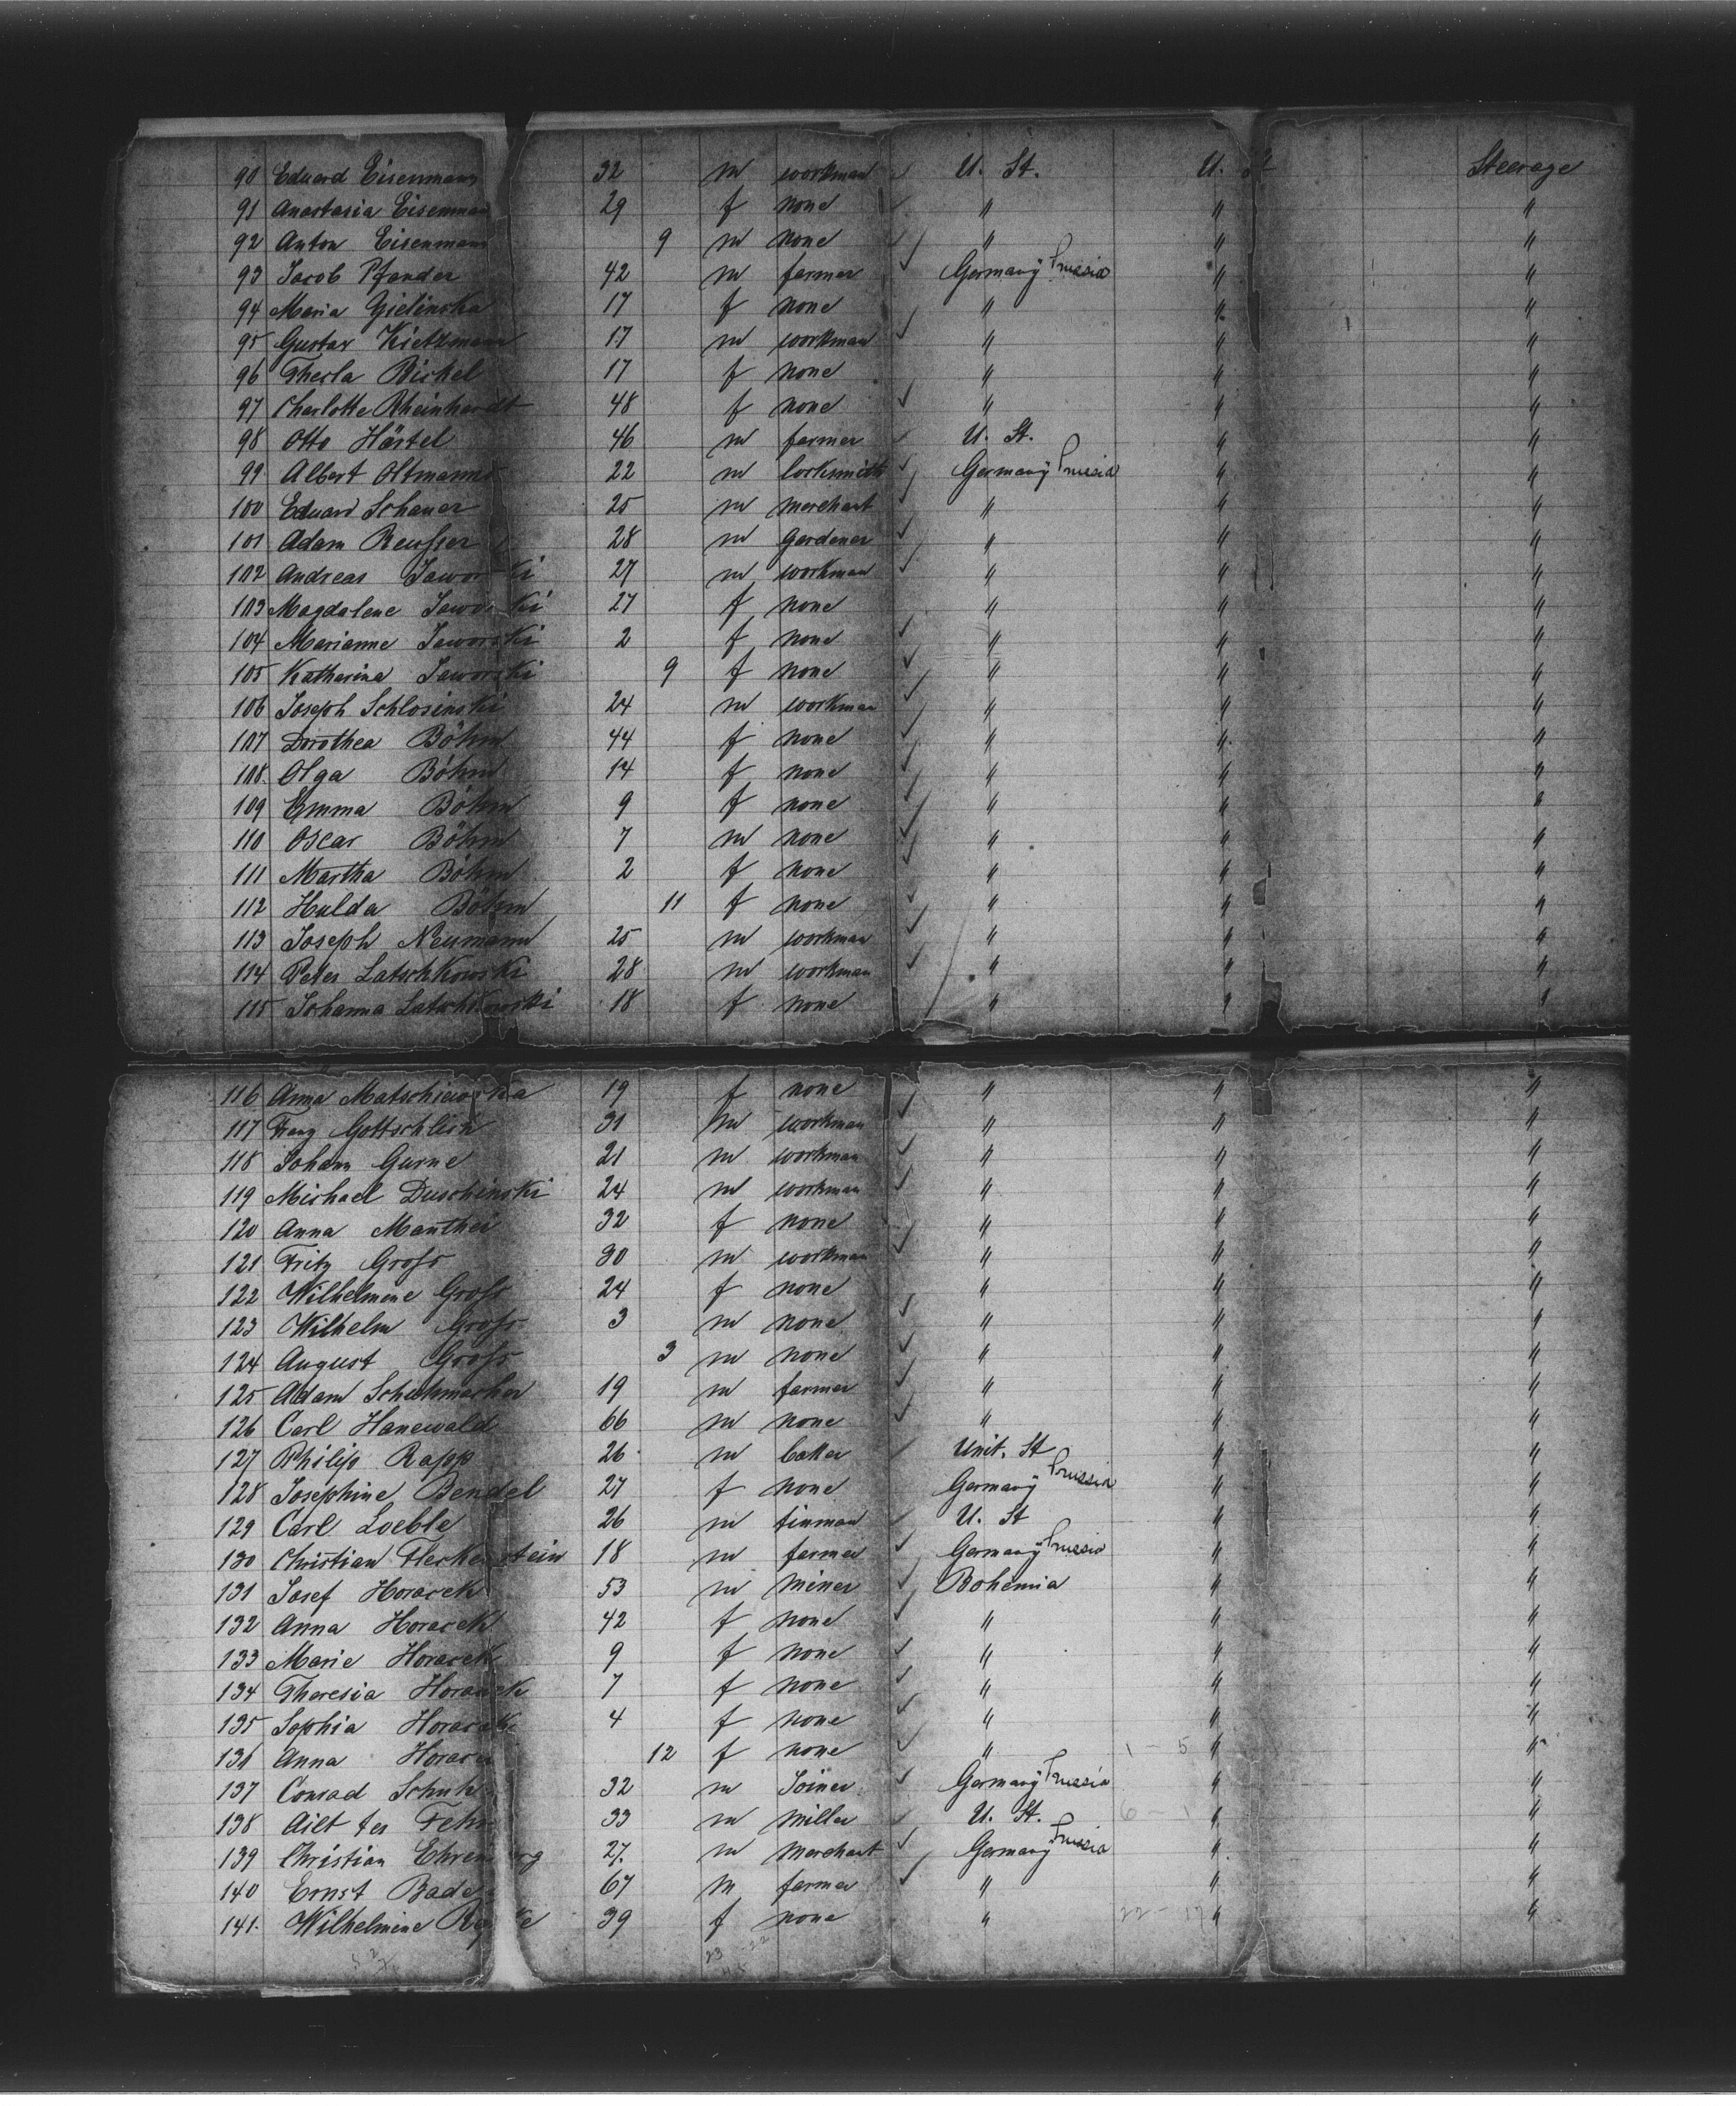 90 Eduard Eisenmann 32 m workman ✓ U. St. U. St Steerage
91 Anastasia Eisenman 29 f none ✓ " " "
92 Anton Eisenmann 9 m none ✓ " " "
93 Jacob Pfander 42 m farmer ✓ Germany Prussia " "
94 Maria Gielinska 17 f none " " "
95 Gustav Kietzmann 17 m workman ✓ " " "
96 Thecla Bichel 17 f none " " "
97 Charlotte Rheinhardt 48 f none ✓ " " "
98 Otto Härtel 46 m farmer ✓ U. St. " "
99 Albert Oltmanns 22 m locksmith ✓ Germany Prussia " "
100 Eduard Schauer 25 m merchant ✓ " " "
101 Adam Reusser 28 m gardener ✓ " " "
102 Andreas Jaworski 27 m workman ✓ " " "
103 Magdalene Jaworski 27 f none " " "
104 Marianne Jaworski 2 f none ✓ " " "
105 Katharina Jaworski 9 f none ✓ " " "
106 Joseph Schlosinski 24 m workman ✓ " " "
107 Dorothea Böhm 44 f none ✓ " " "
108 Olga Böhm 14 f none ✓ " " "
109 Emma Böhm 9 f none ✓ " " "
110 Oscar Böhm 7 m none ✓ " " "
111 Martha Böhm 2 f none ✓ " " "
112 Hulda Böhm 11 f none ✓ " " "
113 Joseph Neumann 25 m workman ✓ " " "
114 Peter Latschkowski 28 m workman ✓ " " "
115 Johanna Latschkowski 18 f none " " "
116 Anna Matschiewska 19 f none ✓ " " "
117 Franz Gottschlich 31 m workman ✓ " " "
118 Johann Gurne 21 m workman ✓ " " "
119 Michael Duschinski 24 m workman ✓ " " "
120 Anna Manthei 32 f none ✓ " " "
121 Fritz Gross 30 m workman ✓ " " "
122 Wilhelmine Gross 24 f none " " "
123 Wilhelm Gross 3 m none ✓ " " "
124 August Gross 3 m none ✓ " " "
125 Adam Schuhmacher 19 m farmer ✓ " " "
126 Carl Hanewald 66 m none ✓ " " "
127 Philip Rapp 26 m baker ✓ Unit. St " "
128 Josephine Bendel 27 f none Germany Prussia " "
129 Carl Loeble 26 m tinman ✓ U. St " "
130 Christian Fleckenstein 18 m farmer ✓ Germany Prussia " "
131 Josef Horacek 53 m miner ✓ Bohemia " "
132 Anna Horacek 42 f none ✓ " " "
133 Marie Horacek 9 f none ✓ " " "
134 Theresia Horacek 7 f none ✓ " " "
135 Sophia Horacek 4 f none ✓ " " "
136 Anna Horace 12 f none ✓ " 1 - 5 " "
137 Conrad Schuh 32 m Joiner ✓ Germany Prussia " "
138 Ailt ter Fehn 33 m miller ✓ U. St. 6 - 1 " "
139 Christian Ehrenberg 27. m merchant ✓ Germany Prussia " "
140 Ernst Bade 67 m farmer ✓ " " "
141. Wilhelmine 39 f none " 22 - 17 " "
23 - 22